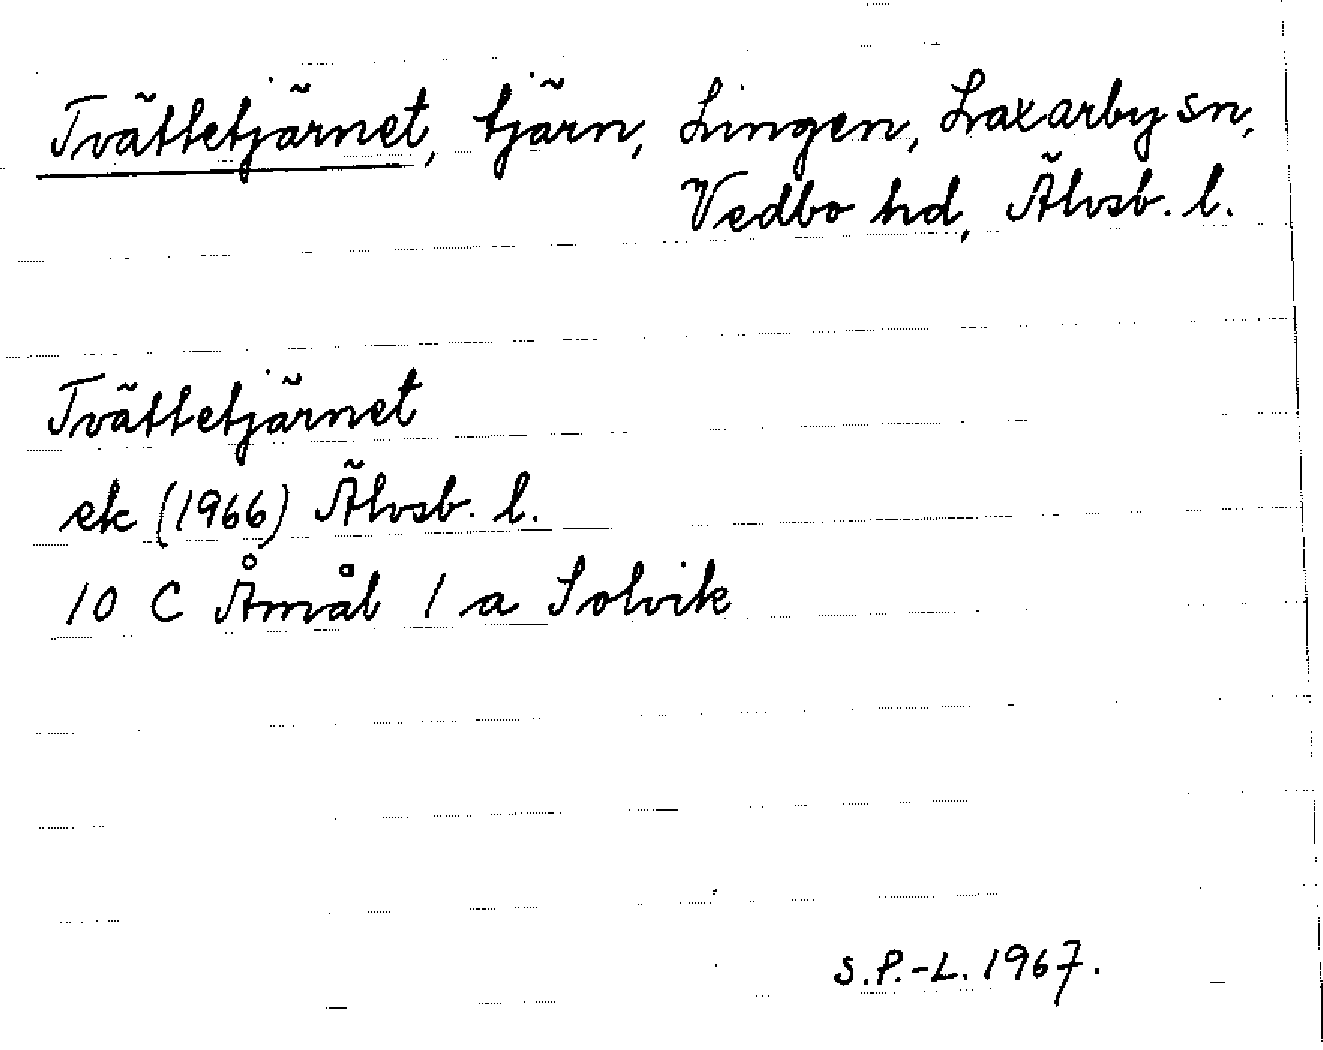 Tvättetjärnet, tjärn, Lingen, Laxarby sn,
Vedbo hd, Älvsb. l.
Tvättetjärnet
ek (1966) Älvsb. l.
10 C Åmål 1 a Solvik
S.P.-L. 1967.